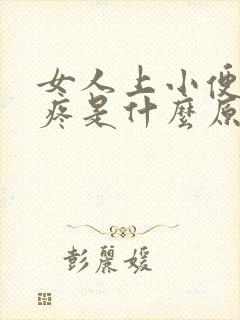 女人上小便
疼是什麼原
彭麗媛